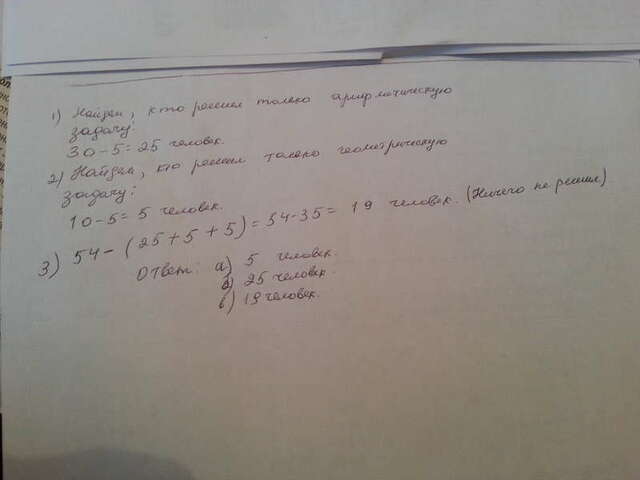 1) Найдем, кто решил только арифметическую
задачу:
30-5=25 человек.
2) Найдем, кто решил только геометрическую
задачу:
10-5=5 человек.
3) 54-(25+5+5)=54-35=19 человек. (Ничего не решил)
Ответ: а) 5 человек.
б) 25 человек.
в) 19 человек.